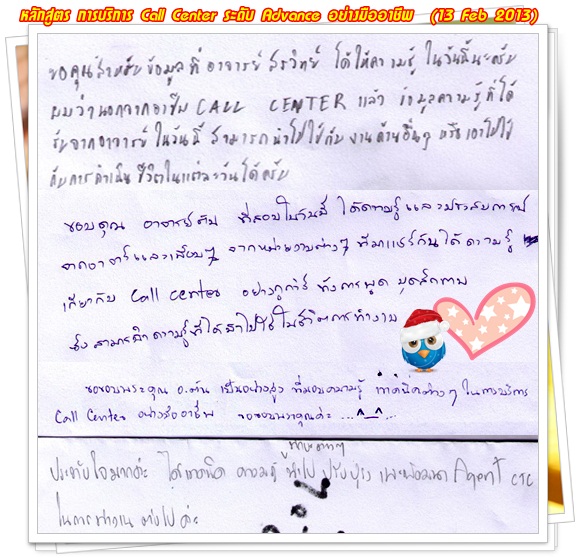 หลักสูตร การบริการ Call Center ระดับ Advance อย่างมืออาชีพ (13 Feb 2013)
ขอคุณสำหรับข้อมูลที่อาจารย์สรวิทย์ ได้ให้ความรู้ ในวันนี้นะครับ
ผมว่านอกจากอาชีพ CALL CENTER แล้ว ข้อมูลความรู้ที่ได้
รับจากอาจารย์ในวันนี้ สามารถนำไปใช้กับงานด้านอื่นๆ หรือเอาไปใช้
กับการดำเนินชีวิตในแต่ละวันได้ครับ
ขอบคุณ อาจารย์ต้น ที่สอนในวันนี้ ได้ความรู้และประสบการณ์
จากอาจารย์และเพื่อนๆ จากหน่วยงานต่างๆ ที่มาแชร์กันได้ความรู้
เกี่ยวกับ Call center อย่างถูกวิธี ทั้งการพูด บุคลิกภาพ
ซึ่งสามารถนำความรู้ที่ได้นำไปใช้ในชีวิตการทำงาน
ขอขอบพระคุณ อ.ต้น เป็นอย่างสูง ที่มอบความรู้ เทคนิคต่างๆ ในการบริการ
Call Center อย่างมืออาชีพ ขอขอบพระคุณค่ะ ...^_^...
ประทับใจมากค่ะ ได้เทคนิค ความรู้ นำไป ปรับปรุง Agent CTC
ในการทำงาน ต่อไป ค่ะ